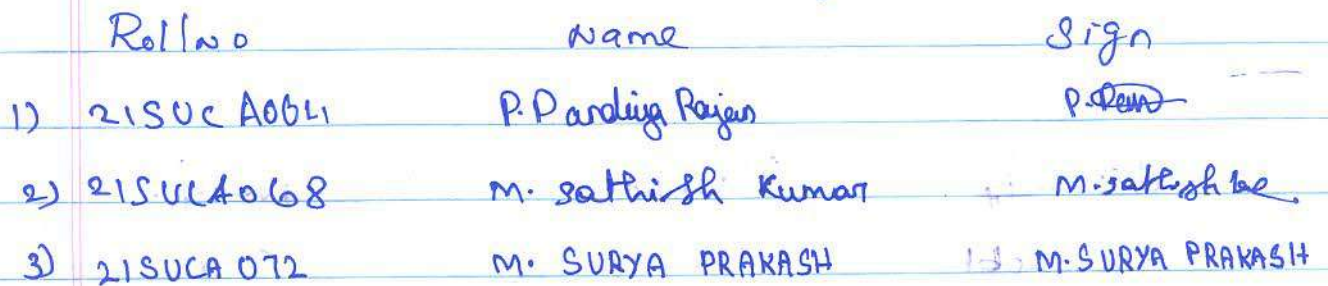 RollNo Name Sign
1) 21SUCA0641 P. Pandiya Rajan P.
2) 21SUCA068 M. Sathish Kumar M. Sathish
3) 21SUCA072 M. SURYA PRAKASH M. SURYA PRAKASH